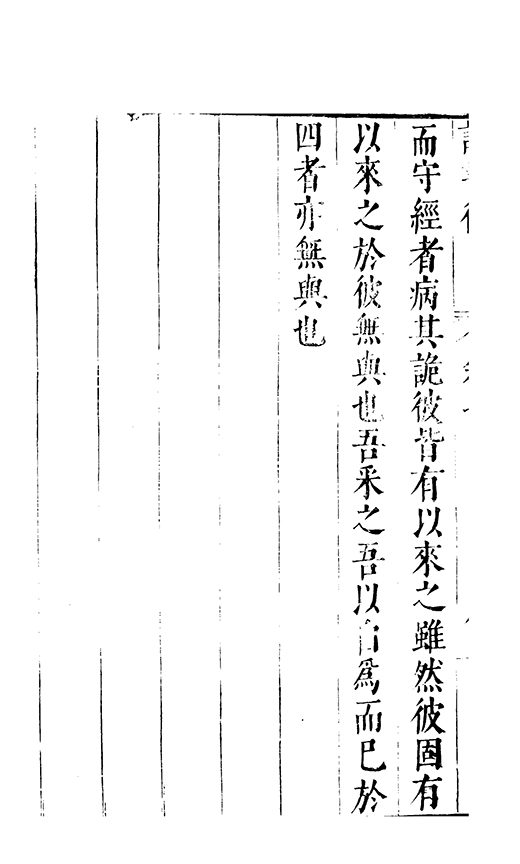 而守經者病其詭彼皆有以來之雖然彼固有
以來之於彼無與也吾采之吾以自爲而已於
四者亦無與也